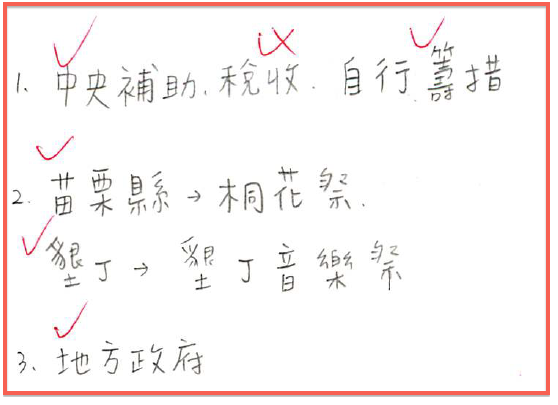 1. 中央補助、稅收、自行籌措
2. 苗栗縣→桐花祭.
墾丁→墾丁音樂祭
3. 地方政府